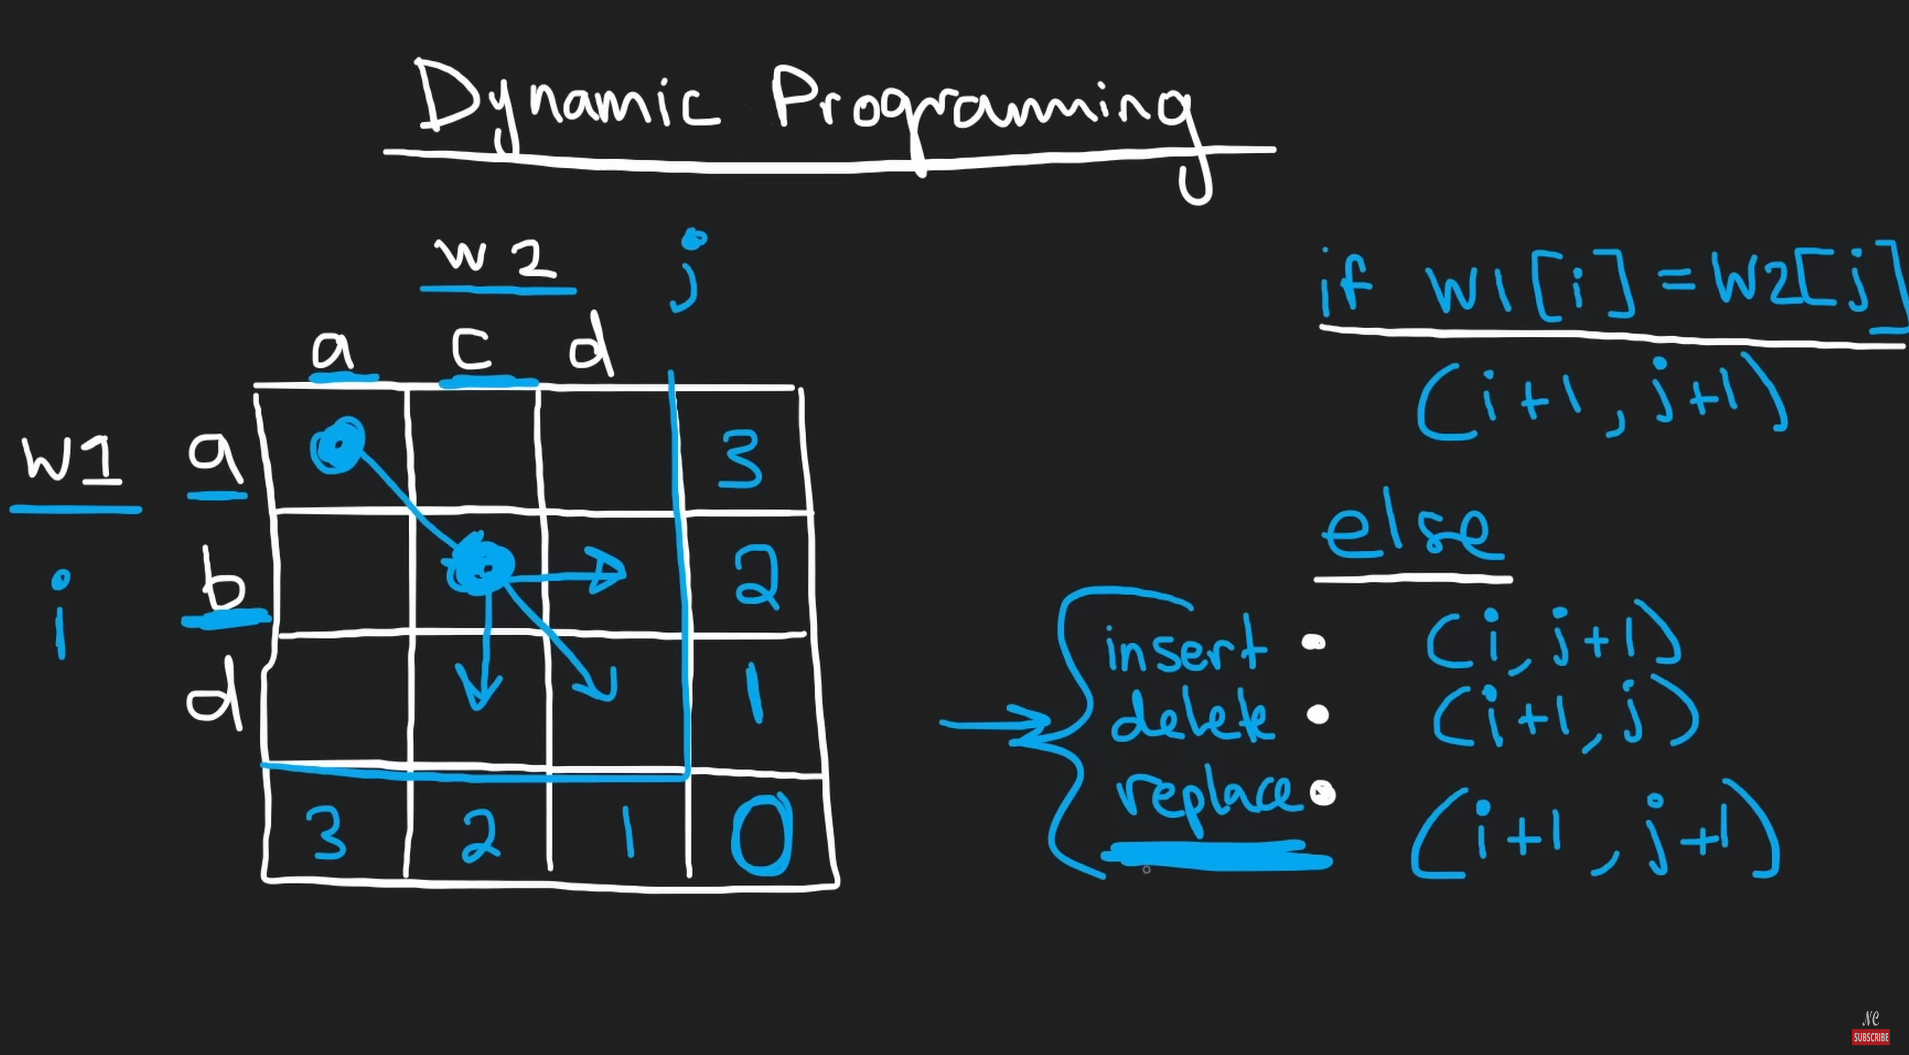 Dynamic Programming
w2 j
a c d
w1 a 3
i b 2
d 1
3 2 1 0
if w1[i] = w2[j]
(i+1, j+1)
else
insert • (i, j+1)
delete • (i+1, j)
replace • (i+1, j+1)
NC
SUBSCRIBE